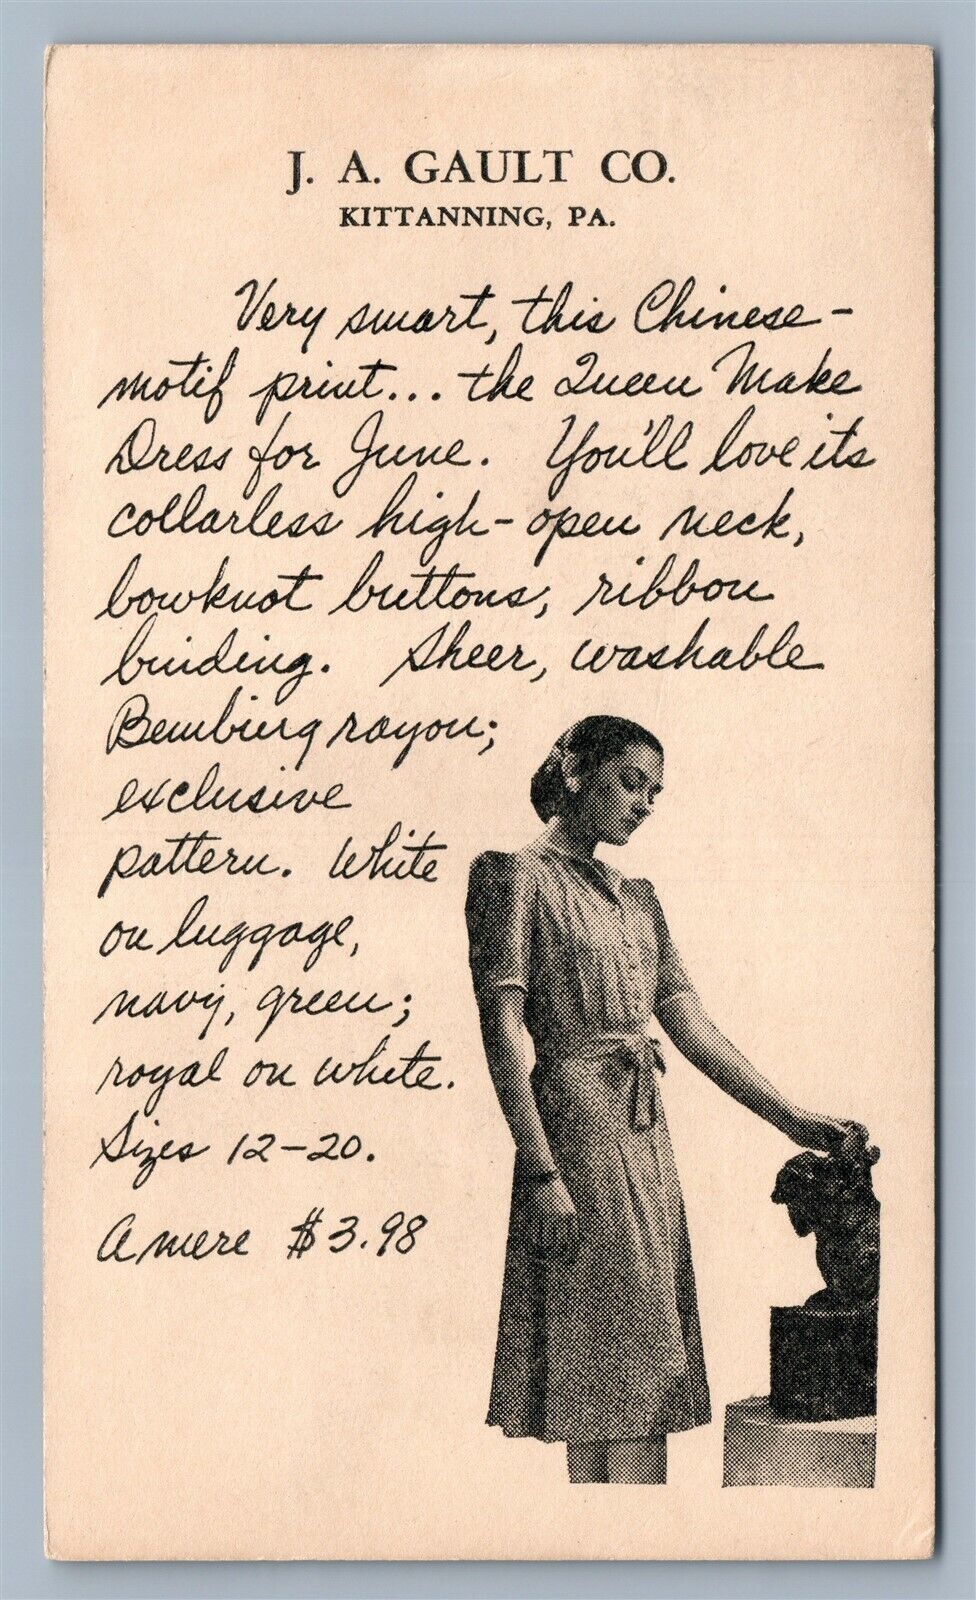 J. A. GAULT CO.
KITTANNING, PA.
Very smart, this Chinese-
motif print... the Queen Make
Dress for June. You'll love its
collarless high-open neck,
bowknot buttons, ribbon
binding. Sheer, washable
Bemburg rayon;
exclusive
pattern. White
on luggage,
navy, green;
royal on white.
Sizes 12-20.
A mere $3.98